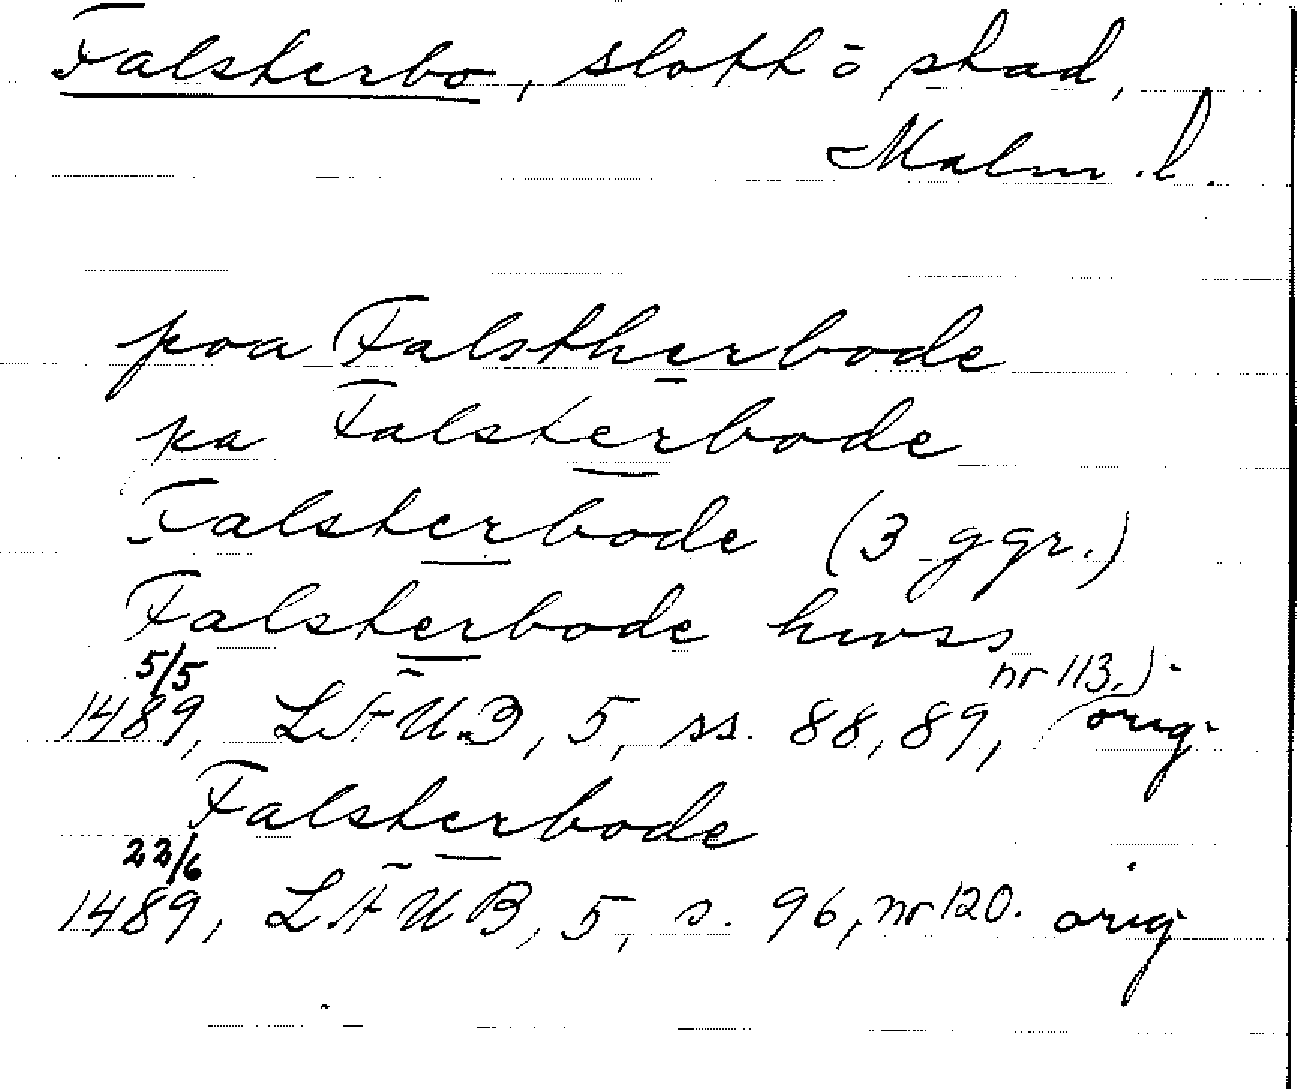 Falsterbo, slott o stad,
Malm. l.
poa Falstherbode
pa Falsterbode
Falsterbode (3 ggr.)
Falsterbode hwss
5/5
nr 113.)
1489, LÄUB, 5, ss. 88, 89, orig.
Falsterbode
22/6
1489, LÄUB, 5, s. 96, nr 120. orig